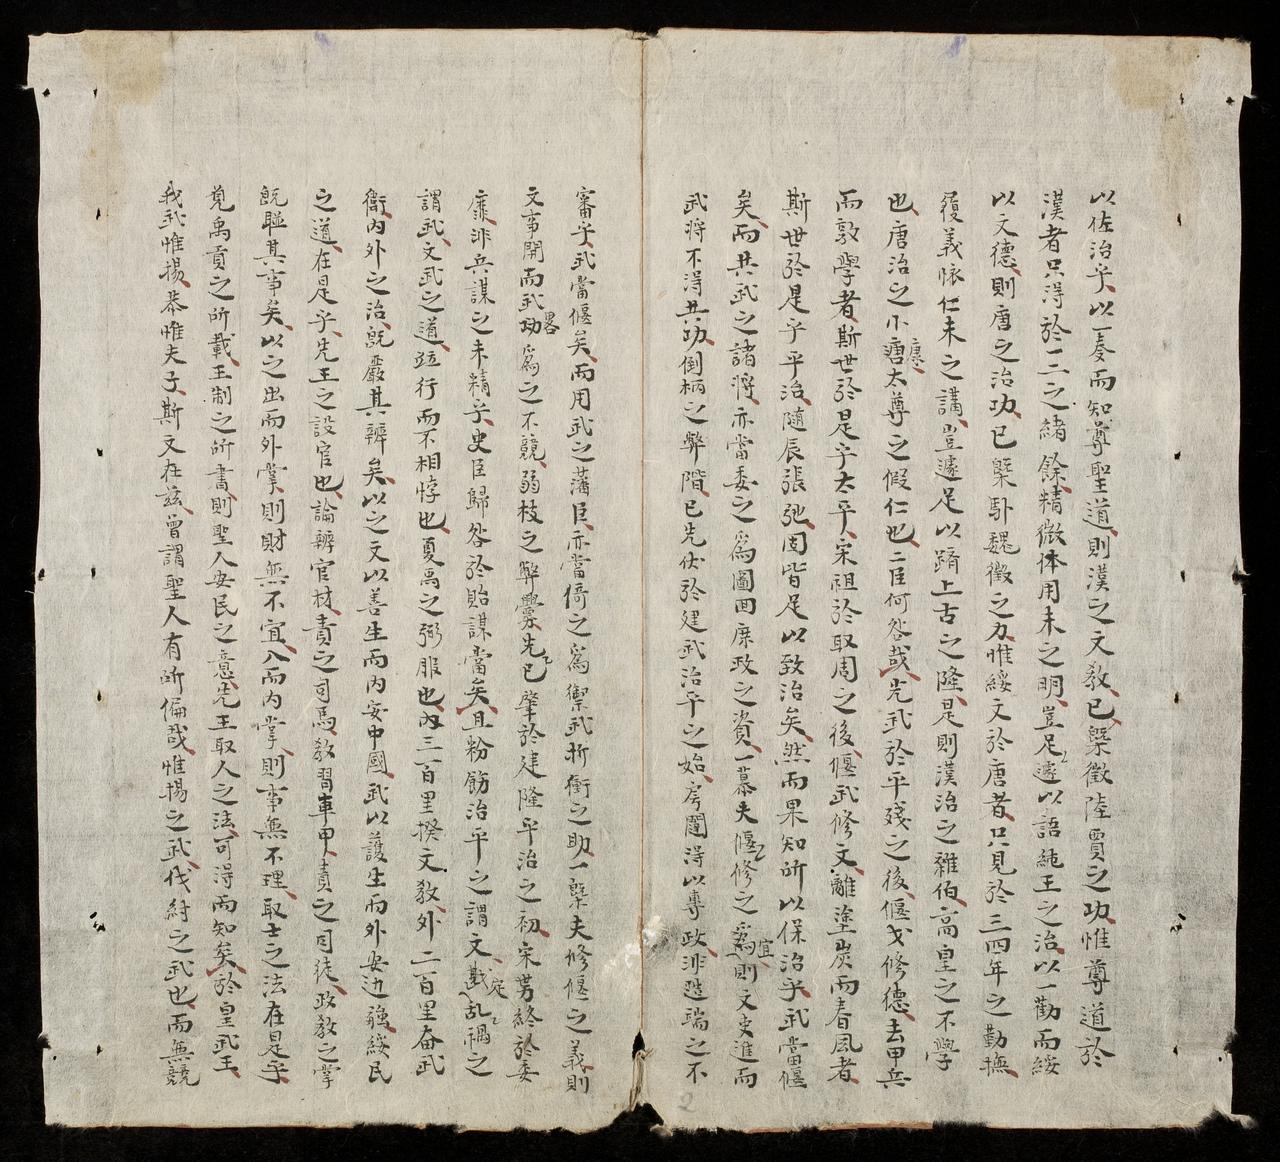 以佐治乎以一麥而知尊聖道則漢之文教已槩徵陸賈之功惟尊道於
漢者只得於一二之緒餘精微体用未之明豈足遽以語純王之治以一勸而綏
以文德則唐之治功已槩卧魏徵之力惟綏文於唐者只見於三四年之勤撫
復義依仁未之講豈遽足以躋上古之隆是則漢治之雜伯高皇之不學
也唐治之小康太尊之假仁也二臣何咎哉先武於平殘之後偃戈修德去甲兵
而敦學者斯世於是乎太平宋祖於取周之後偃武修文離塗炭而春風者
斯世於是乎平治隨辰張弛固皆足以致治矣然而果知所以保治乎武當偃
矣而共武之諸將亦當委之為圖囬庶政之資一慕夫偃修之宜則文吏進而
武將不得共功倒柄之弊階已先伏於建武治平之始房闥得以專政非造端之不
審乎武當偃矣而用武之藩臣亦當倚之為禦武折衝之助一槩夫修偃之義則
文事開而武畧為之不競弱枝之弊釁已先肇於建隆平治之初宋勢終於委
靡非兵謀之未精乎史臣歸咎於貽謀當矣且粉飭治平之謂文戡定禍乱之
謂武文武之道並行而不相悖也夏禹之弼服也內三百里揆文教外二百里奋武
衛內外之治既嚴其辨矣以之文以善生而內安中國武以護生而外安边疆綏民
之道在是乎先王之設官也論辨官材責之司馬教習車甲責之司徒政教之掌
既聯其事矣以之出而外掌則財無不宜入而內掌則事無不理取士之法在是乎
覓禹貢之所載王制之所書則聖人安民之意先王取人之法可得而知矣於皇武王
我武惟揚恭惟夫子斯文在兹曾謂聖人有所偏哉惟揚之武伐紂之武也而無競